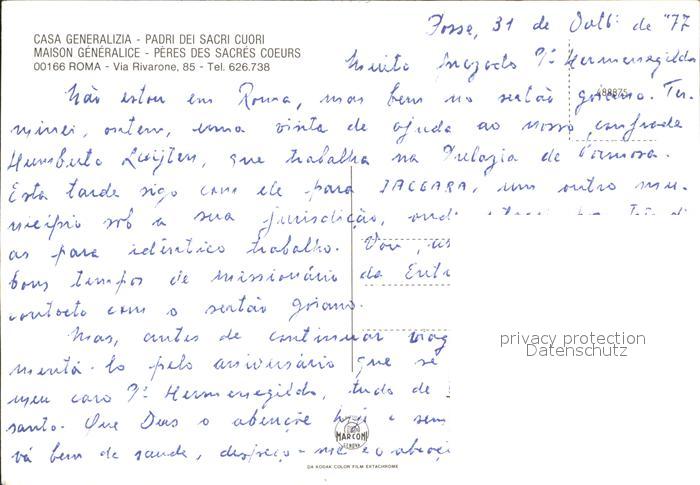 CASA GENERALIZIA - PADRI DEI SACRI CUORI
MAISON GÉNÉRALICE - PÈRES DES SACRÉS COEURS
00166 ROMA - Via Rivarone, 85 - Tel. 626.738
Posse, 31 de Outb: de "77
Muito prezado Pe Hermenegildo
Não estou em Roma, mas bem no sertão goiano. Ter-
minei, ontem, uma visita de ajuda ao nosso confrade
Humberto Luijten, que trabalha na Prelazia de Formosa.
Esta tarde sigo com ele para IACIARA, um outro mu-
nicípio sob a sua jurisdição, onde
as para idêntico trabalho. Vou
bons tempos de missionário da
contacto com o sertão goiano.
Mas, antes de continuar
mentá-lo pelo aniversário que se
meu caro Pe Hermenegildo, tudo de
santo. Que Deus o abençoe hoje e
vá bem de saude, despeço-me e o
488875
MARCONI
GENOVA
DA KODAK COLOR FILM EKTACHROME
privacy protection
Datenschutz